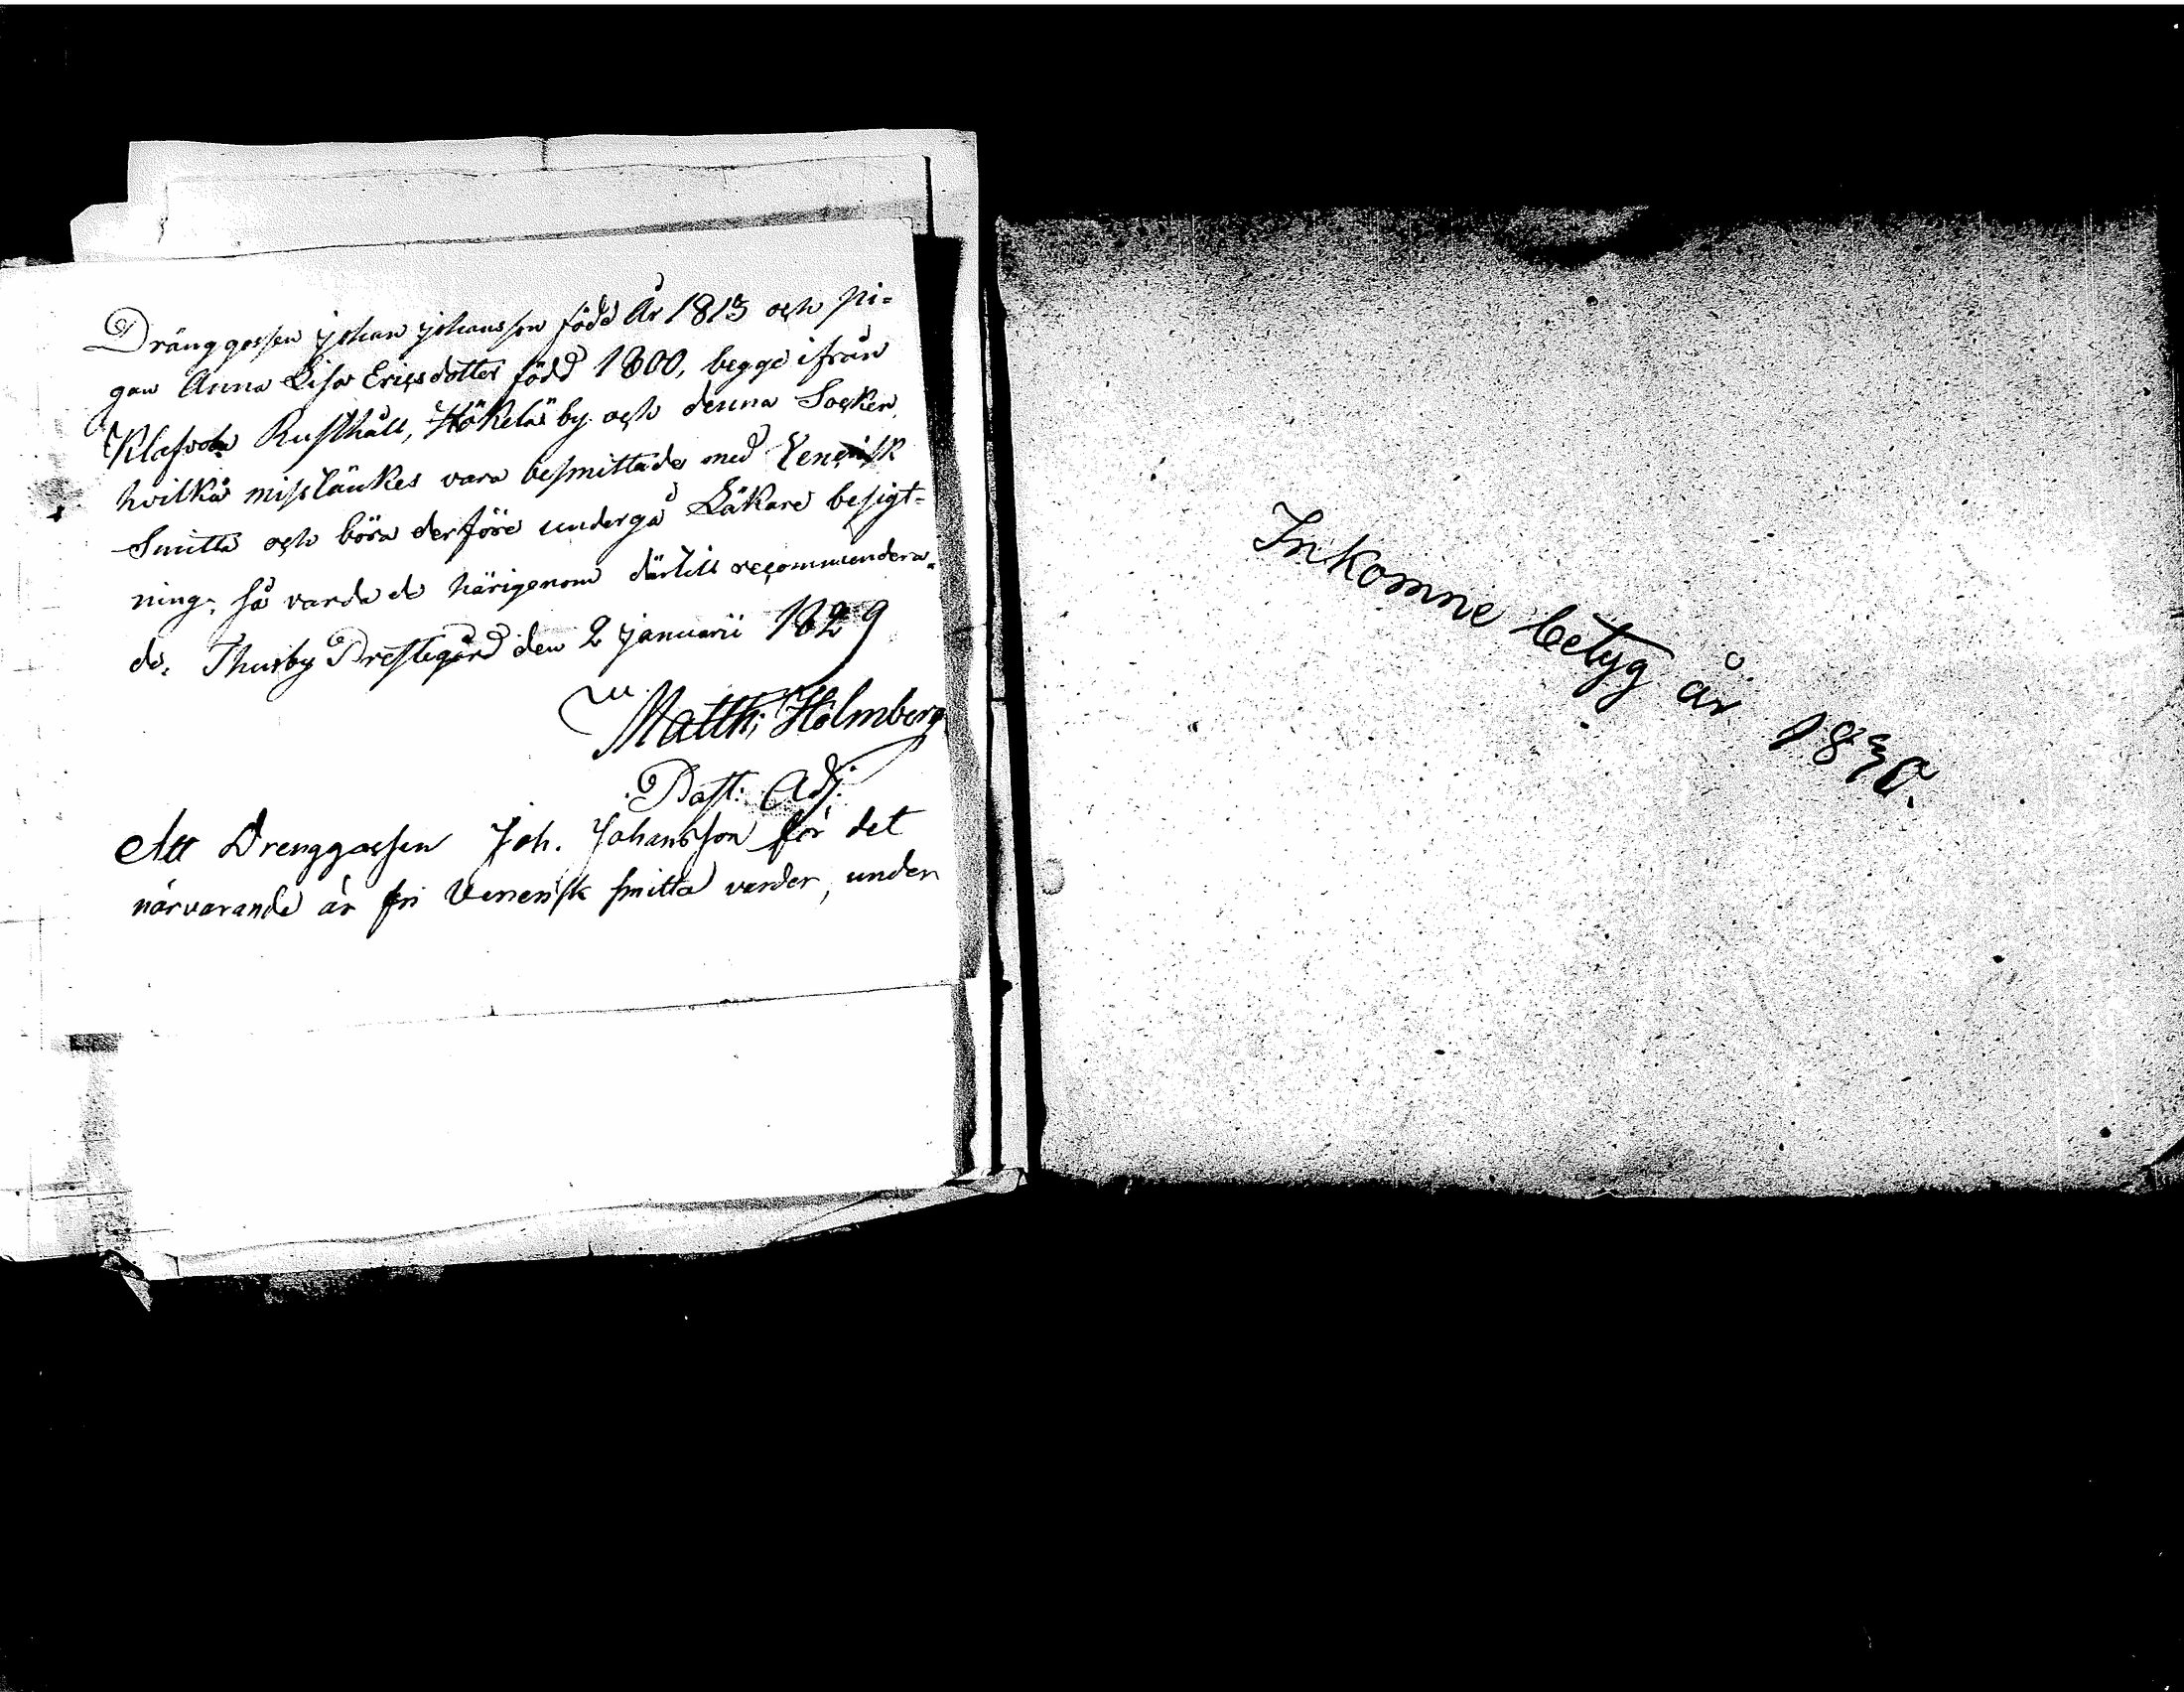 Dränggossen Johan Johansson född År 1813 och pi-
gan Anna Lisa Ericsdotter född 1800, begge ifrån
Rusthåll, Hökelä by och denna Socken,
hvilka misstänkes vara besmittade med Venerisk
Smitta och böra derföre undergå Läkare besigt-
ning; så varda de härigenom därtill recommendera-
de. Thusby Prestegård den 2 Januarii 1829
Matth: Holmberg
Past: Adj:
Att Drenggossen Joh. Johansson för det
närvarande är fri Venerisk smitta varder, under
Inkomne betyg år 1830.